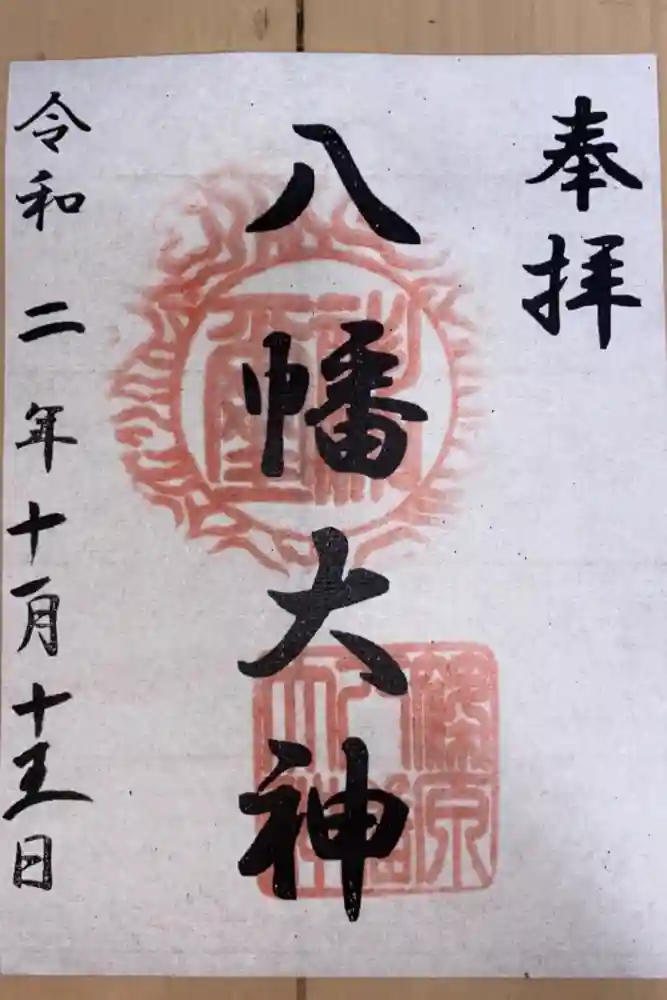 奉拝
八幡大神
令和二年十一月十五日